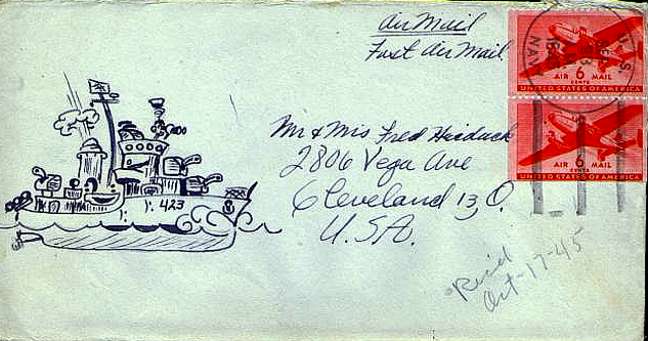 Air Mail
Fast Air Mail.
U.S. NAVY
6
AIR MAIL
CENTS
UNITED STATES OF AMERICA
6
AIR MAIL
CENTS
UNITED STATES OF AMERICA
Mr & Mrs Fred
2806 Vega Ave
Cleveland 13, O.
U.S.A.
423
8
Rec'd
Oct-17-45